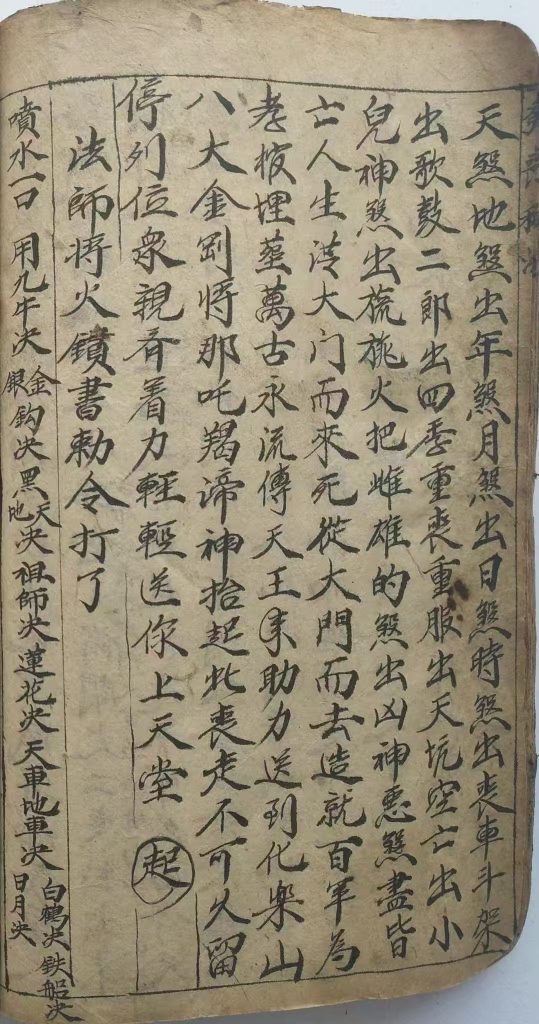 天煞地煞出年煞月煞出日煞時煞出喪車斗架
出歌鼓二郎出四季重喪重服出天坑空亡出小
兒神煞出旒旎火把雌雄的煞出凶神惡煞盡皆
亡人生從大门而來死從大門而去造就百年為
孝披埋葬萬古永流傳天王来助力送到化樂山
八大金剛将那吒羯諦神抬起此喪走不可久留
停列位衆親齐着力輕輕送你上天堂 起
法師将火鐼書勅令打了
噴水一口 用九牛决 金銀鈎决 黑天地决 祖師决 蓮花决 天車地車决 日月决 白鶴决 鉄船决